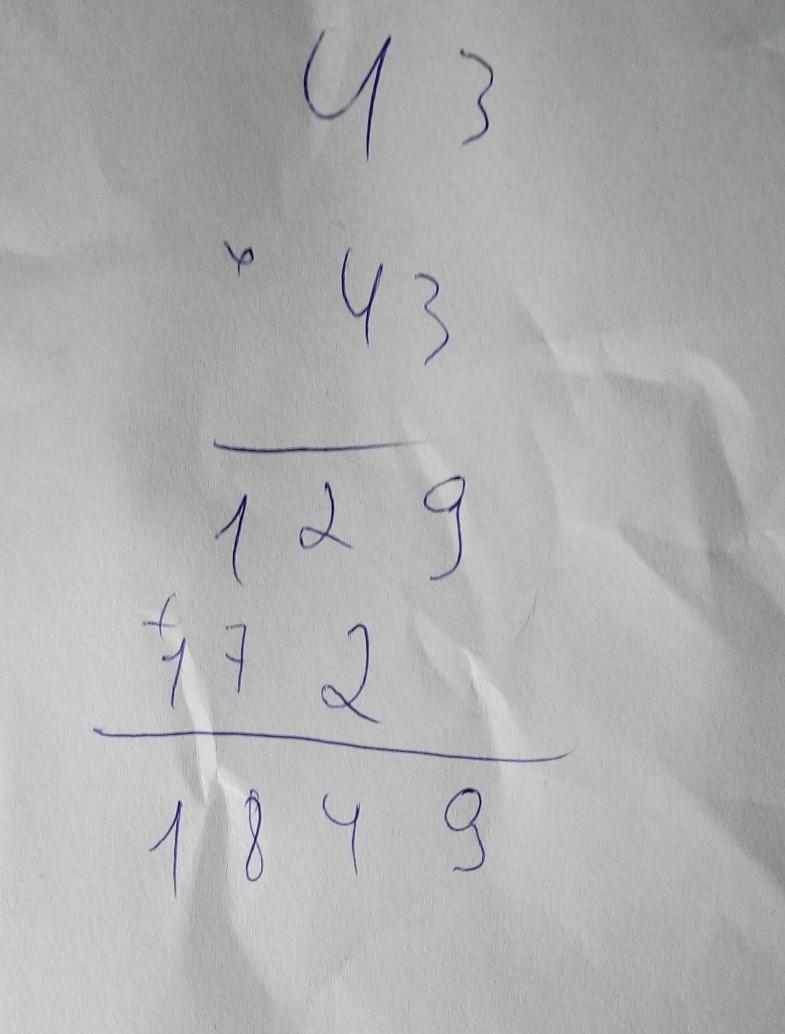 43
× 43
129
+172
1849